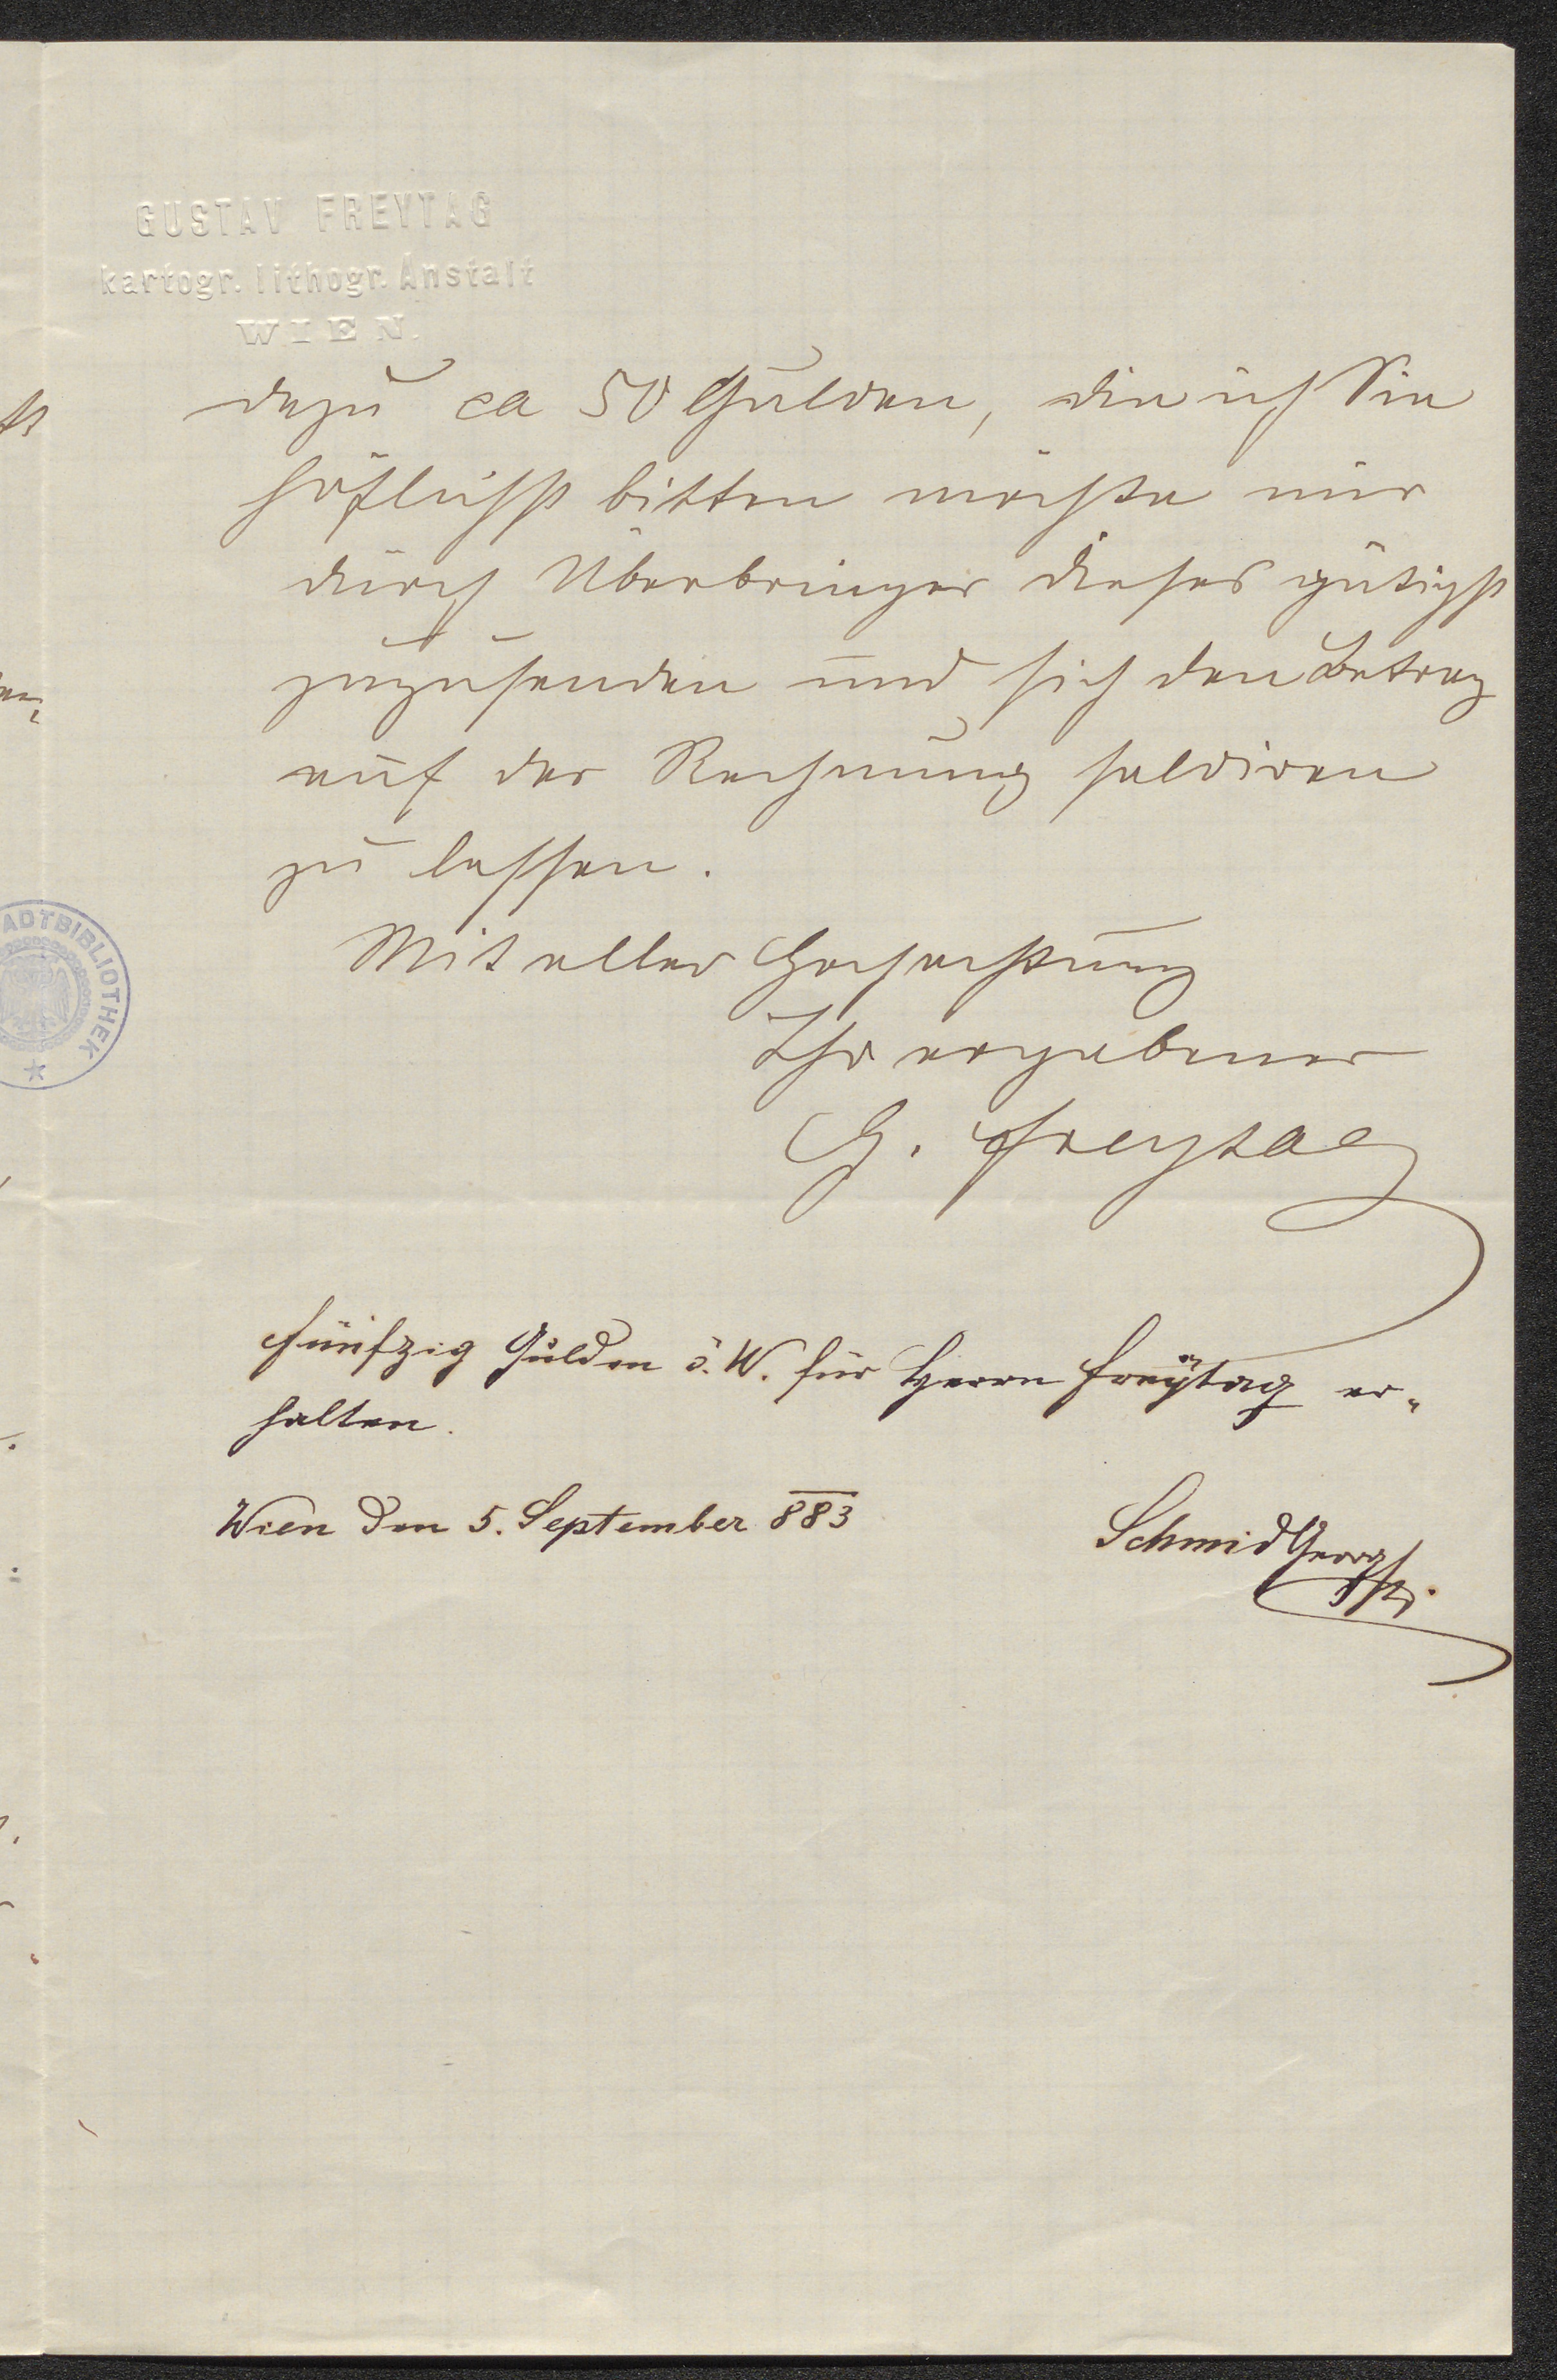 GUSTAV FREYTAG
kartogr. lithogr. Anstalt
WIEN.
dazu ca 50 Gulden, die ich Sie
höflichst bitten möchte mir
durch Überbringer dieses gütigst
zuzusenden und sich den Betrag
auf der Rechnung saldiren
zu lassen.
Mit aller Hochachtung
Ihr ergebener
G. Freytag
ADTBIBLIOTHEK
Fünfzig Gulden ö. W. für Herrn Freytag er-
halten.
Wien den 5. September 883
Schmid Georg